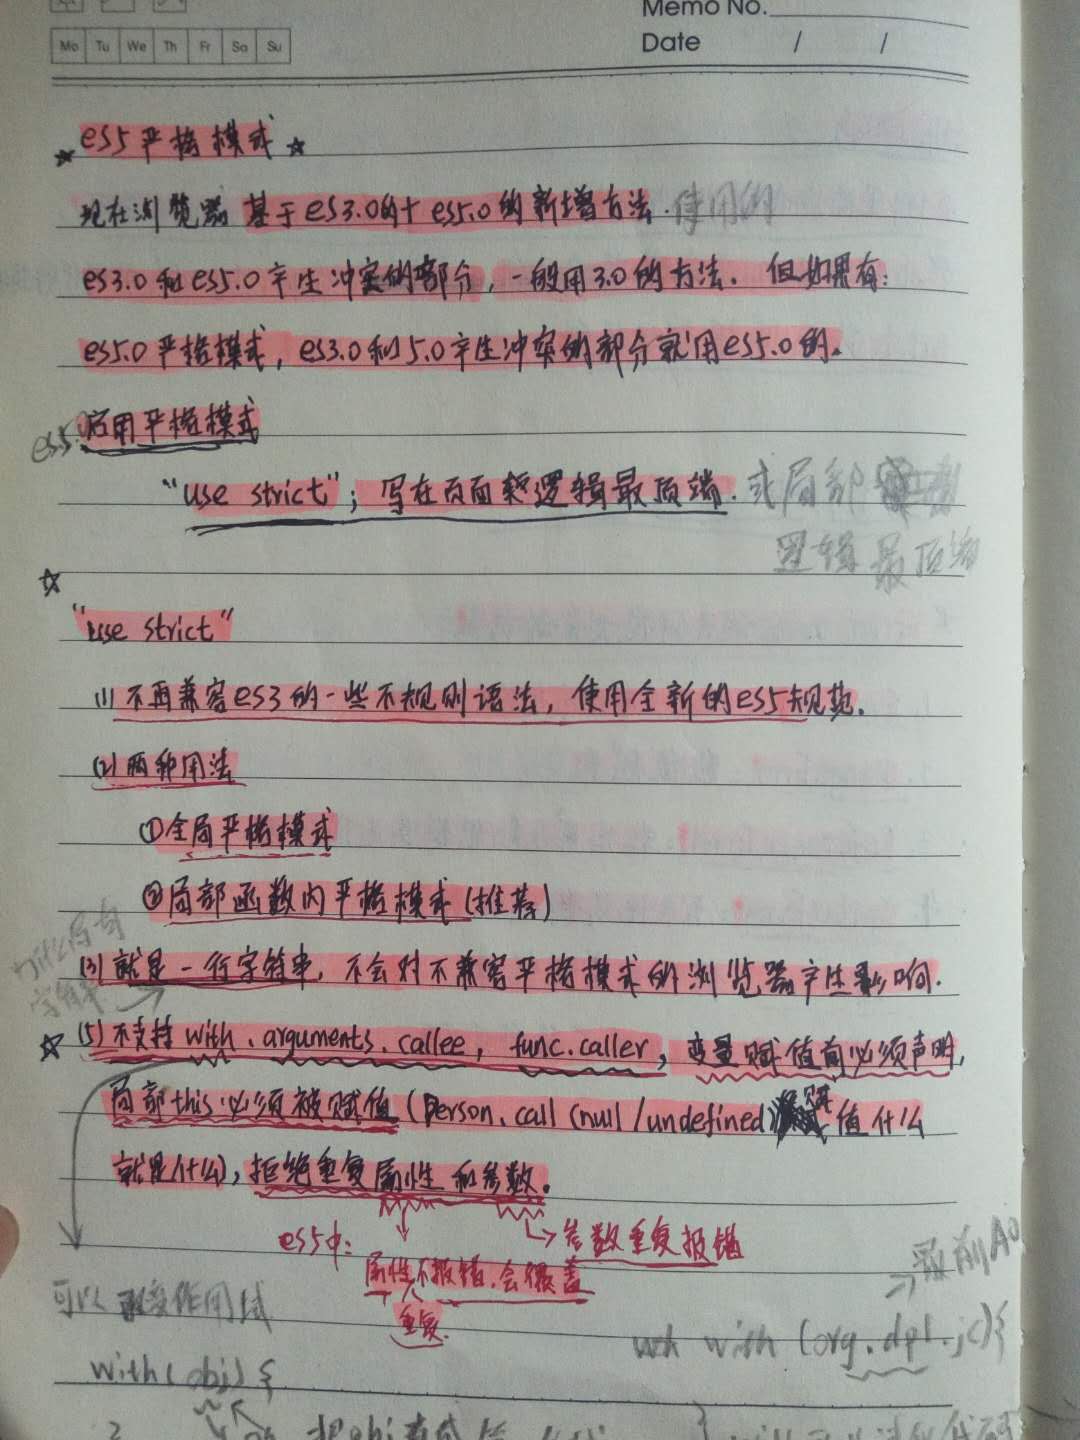 Memo No.
Mo Tu We Th Fr Sa Su
Date / /
☆ es5严格模式 ☆
现在浏览器 基于es3.0的+es5.0的新增方法.使用的
es3.0和es5.0产生冲突的部分, 一般用3.0的方法. 但如果有:
es5.0严格模式, es3.0和5.0产生冲突的部分就用es5.0的.
es5.0启用严格模式
"use strict"; 写在页面 逻辑最顶端. 或局部
逻辑最顶端
☆
"use strict"
(1) 不再兼容es3的一些不规则语法, 使用全新的es5规范.
(2) 两种用法
①全局严格模式
②局部函数内严格模式(推荐)
为什么用字
字符串
(3) 就是一行字符串, 不会对不兼容严格模式的浏览器产生影响.
☆ (5) 不支持with, arguments.callee, func.caller, 变量赋值前必须声明,
局部this必须被赋值(Person.call(null/undefined)赋值什么
就是什么), 拒绝重复属性和参数.
es5中: → 参数重复报错
属性不报错.会覆盖
重复
→ 最前AO
可以改变作用域
with (org.dpl.jc){
with(obj){